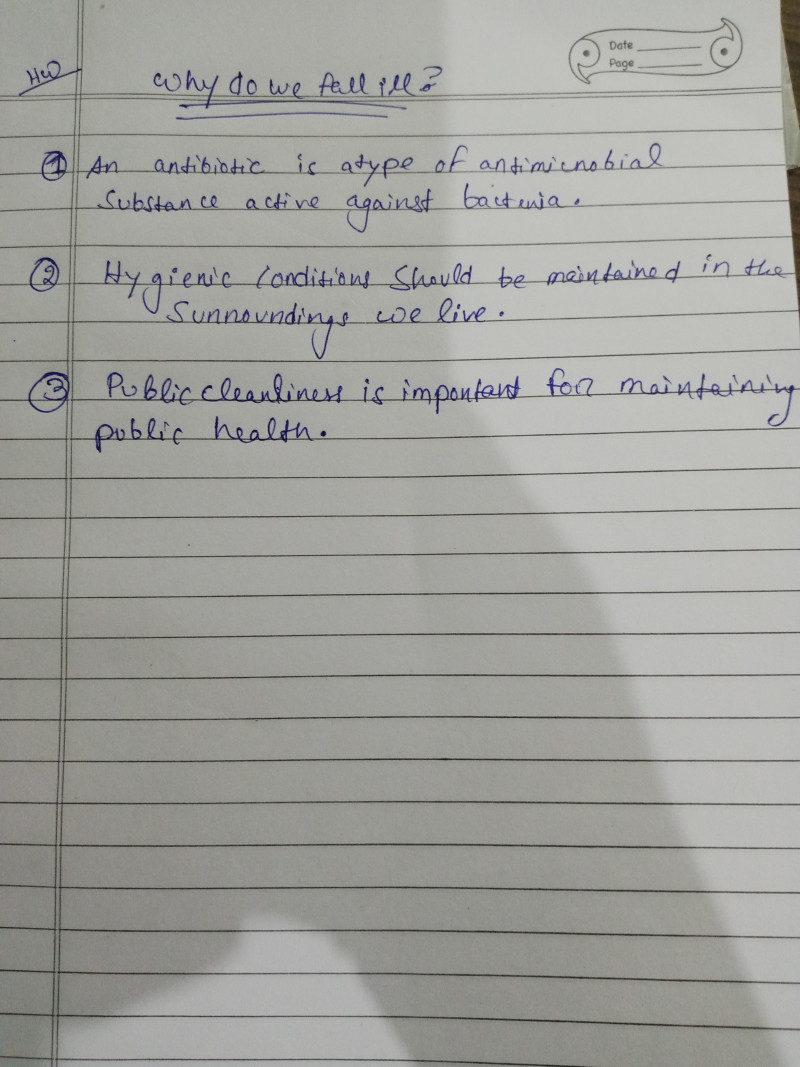 HW
Date
Page
Why do we fall ill?
① An antibiotic is a type of antimicrobial
Substance active against bacteria.
② Hygienic Conditions Should be maintained in the
Surroundings we live.
③ Public cleanliness is important for maintaining
public health.